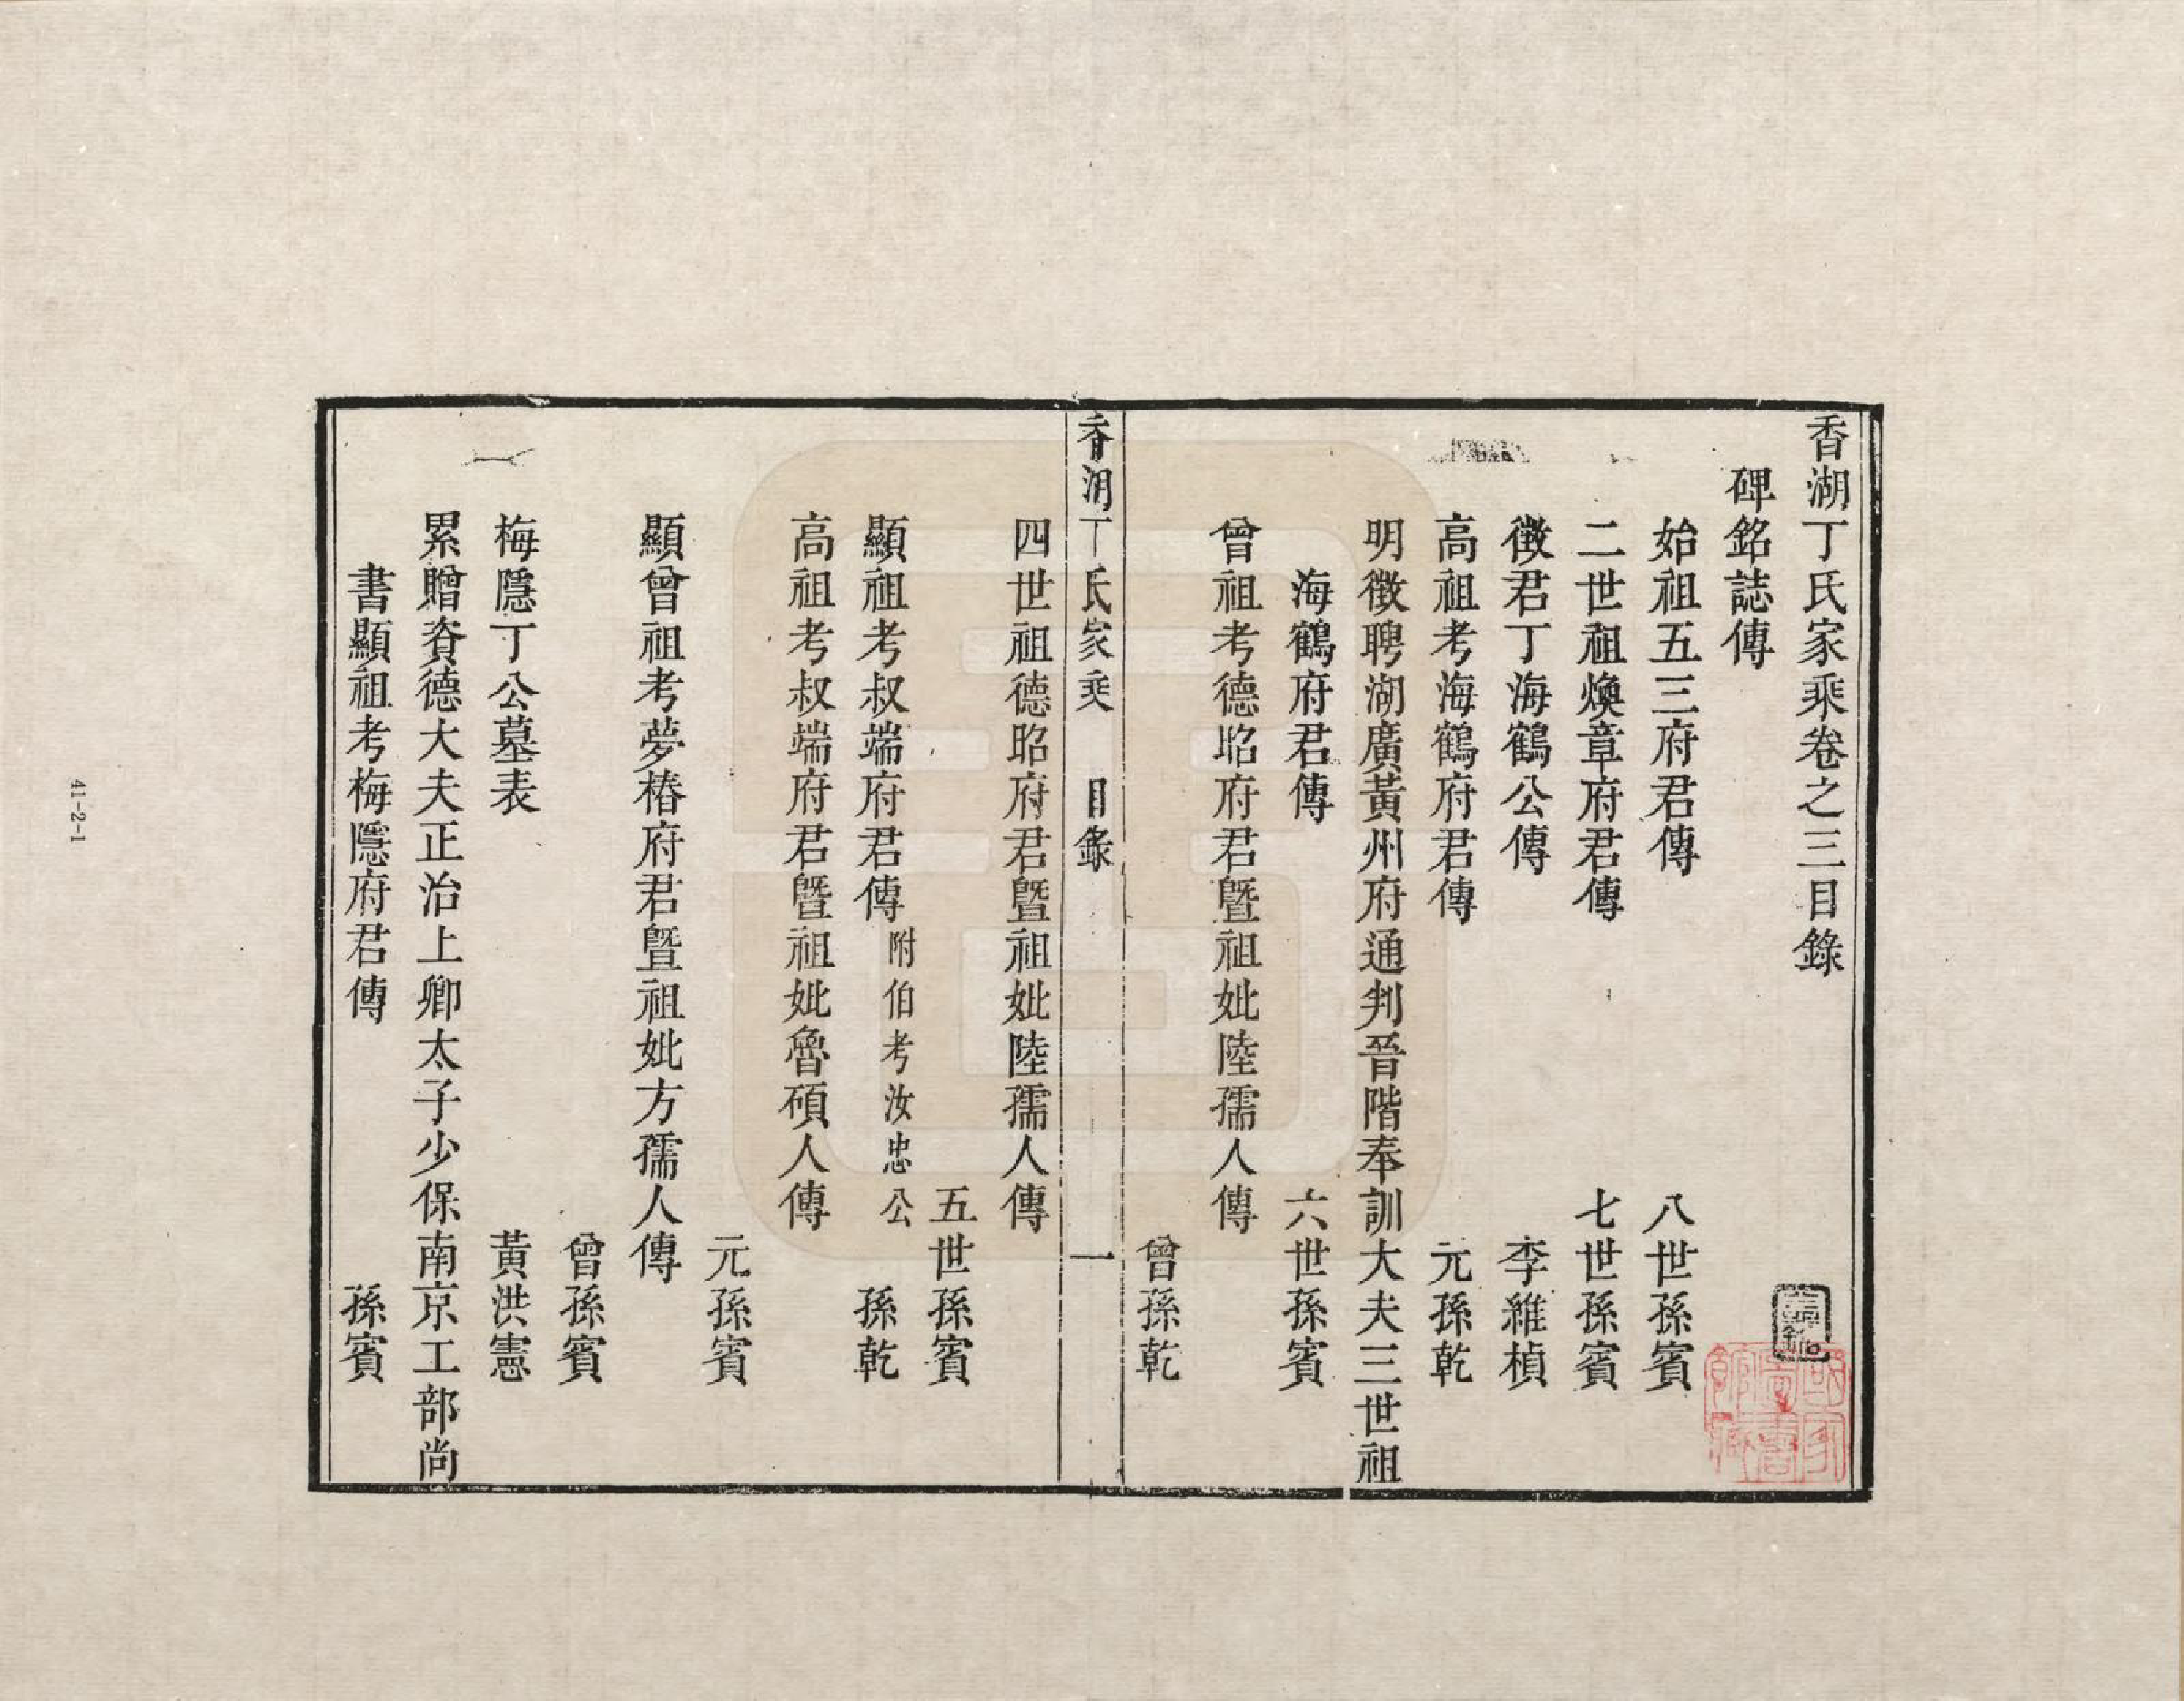 香湖丁氏家乘卷之三目錄
碑銘誌傳
始祖五三府君傳 八世孫賓
二世祖煥章府君傳 七世孫賓
徵君丁海鶴公傳 李維楨
高祖考海鶴府君傳 元孫乾
明徵聘湖廣黃州府通判晉階奉訓大夫三世祖
海鶴府君傳 六世孫賓
曾祖考德昭府君暨祖妣陸孺人傳
曾孫乾
香湖丁氏家乘 目錄 一
四世祖德昭府君暨祖妣陸孺人傳
五世孫賓
顯祖考叔端府君傳 附伯考汝忠公 孫乾
高祖考叔端府君暨祖妣魯碩人傳
元孫賓
顯曾祖考夢椿府君暨祖妣方孺人傳
曾孫賓
梅隱丁公墓表 黃洪憲
累贈資德大夫正治上卿太子少保南京工部尚
書顯祖考梅隱府君傳 孫賓
41-2-1